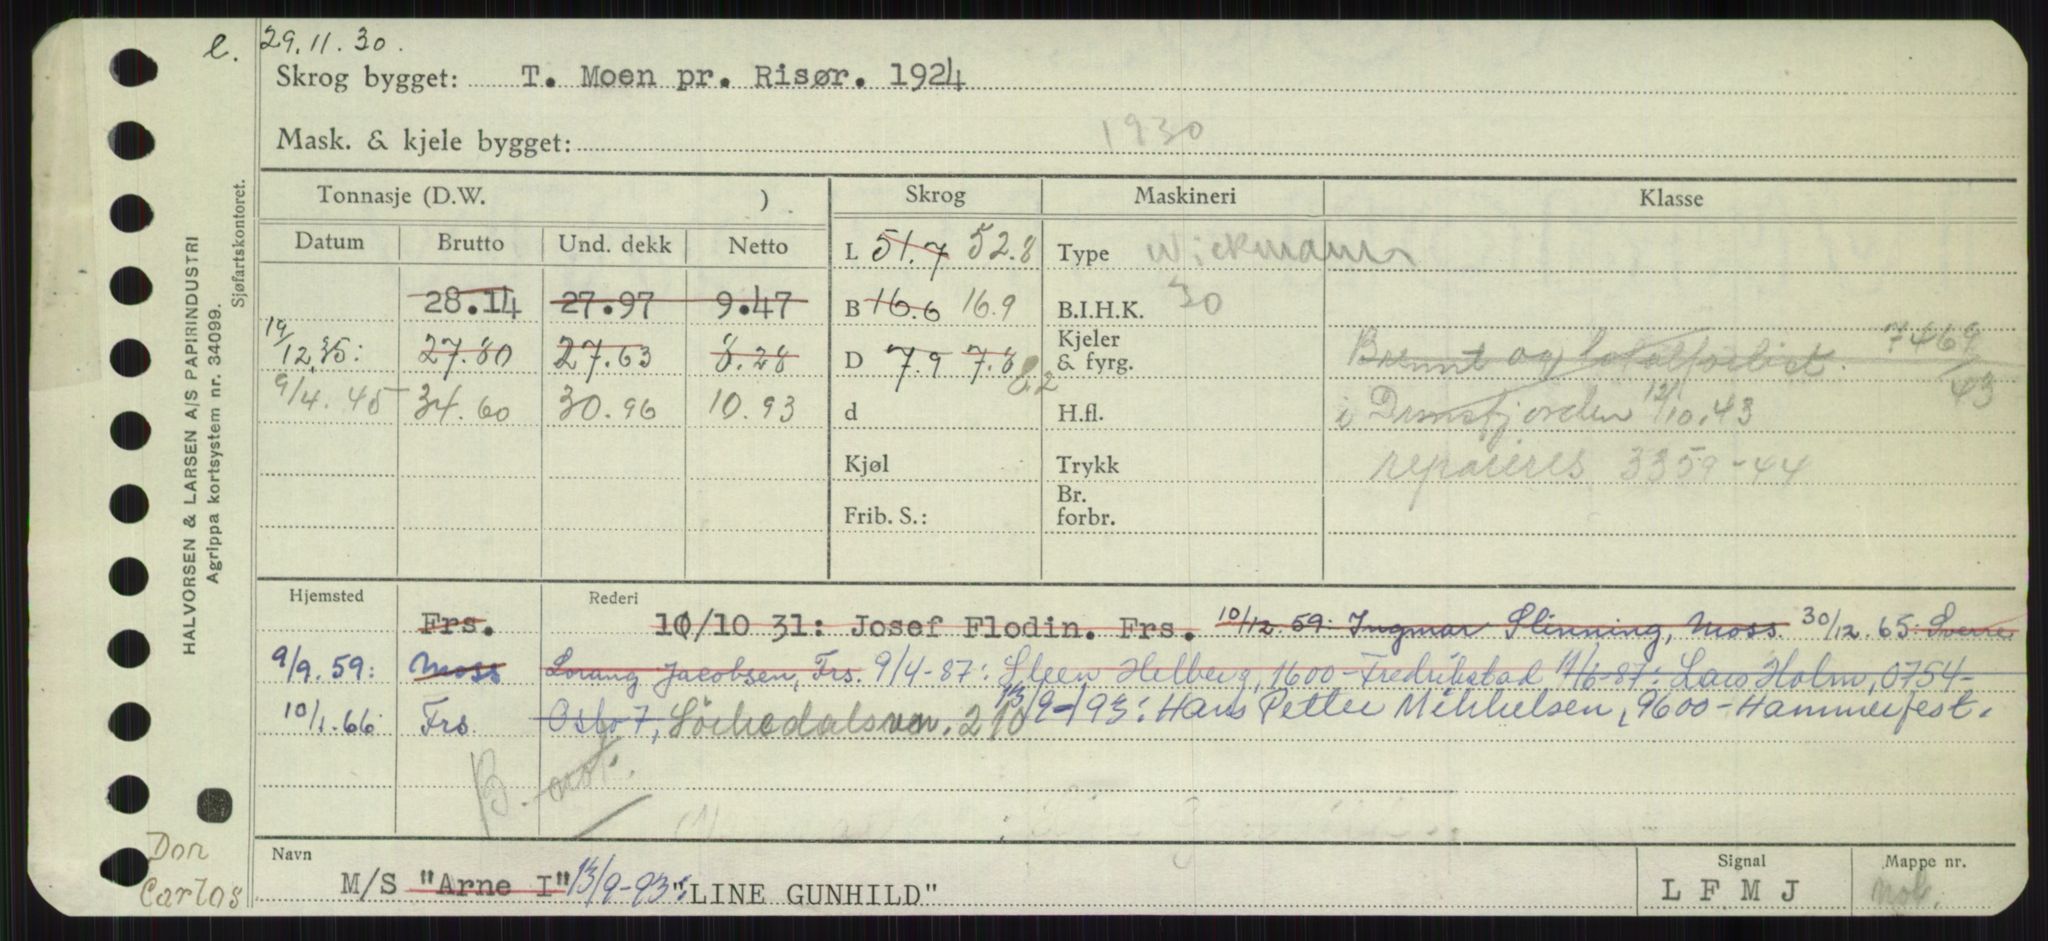 e.
29.11.30.
Skrog bygget: T. Moen pr. Risør. 1924
Mask. & kjele bygget: 1930
HALVORSEN & LARSEN A/S PAPIRINDUSTRI
Agrippa kortsystem nr. 34099.
Sjøfartskontoret.
Tonnasje (D.W. ) Skrog Maskineri Klasse
Datum Brutto Und. dekk Netto
L 51.7 52.8 Type Wickmann
28.14 27.97 9.47
B 16.6 16.9 B.I.H.K. 30
19/12.35: 27.80 27.63 8.28
D 7.9 7.8 8.2 Kjeler & fyrg.
Brent og totalforlist. 7469/43
9/4.45 34.60 30.96 10.93
d H.fl. i 12/10.43
Kjøl Trykk repareres 3359-44
Frib. S.: Br. forbr.
Hjemsted Rederi
Frs. 10/10 31: Josef Flodin. Frs. 10/12.59: Ingmar Slinning, Moss. 30/12.65: Sverre
9/9.59: Moss Lorang Jacobsen, Frs. 9/4-87: Steen Helberg, 1600-Fredrikstad 11/6-87: Lars Holm, 0754-
10/1.66: Frs Oslo 7, Sörkedalsvn. 210 13/9-93: Hans Petter Mikkelsen, 9600-Hammerfest.
B.
Don
Carlos
Navn Signal Mappe nr.
M/S "Arne I" 13/9-93: "LINE GUNHILD" L F M J Mob.